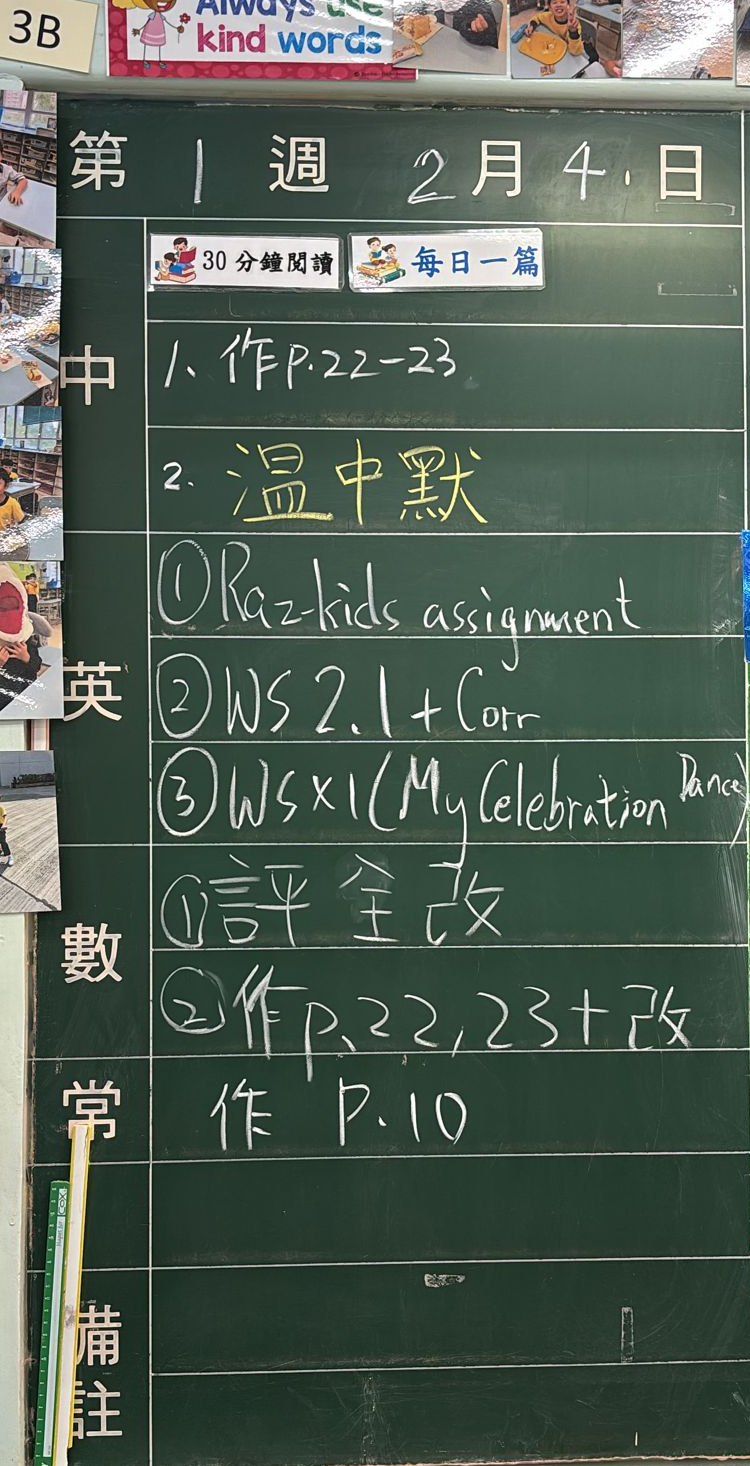 3B
Always use
kind words
第 1 週 2 月 4 日
30 分鐘閱讀 每日一篇
中
1、作 P.22-23
2. 溫中默
英
① Raz-kids assignment
② WS 2.1 + Corr
③ WS x1 (My Celebration Dance)
數
① 評 全 改
② 作 p.22, 23 + 改
常
作 P.10
備註